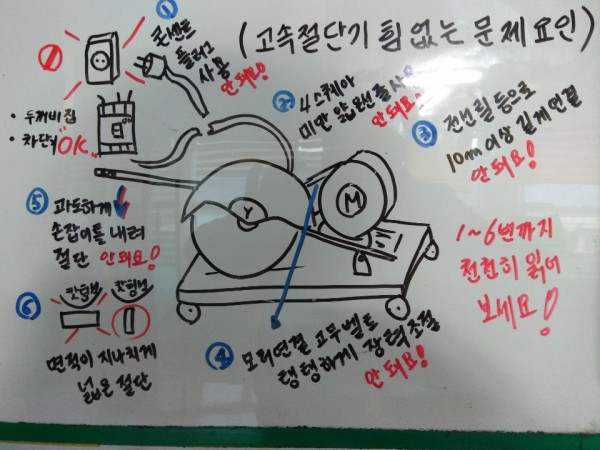 (고속절단기 힘없는 문제요인)
① 콘센트
플러그
사용
안돼요!
· 두꺼비집
· 차단기 "OK"
② 4스퀘아
미만 얇은전선줄사용
안돼요
③ 전선릴 등으로
10m 이상 길게 연결
안돼요!
Y
M
⑤ 과도하게
손잡이를 내려
절단 안돼요!
1~6번까지
천천히 읽어
보세요!
⑥
면적이 지나치게
넓은 절단
④ 모터연결 고무벨트
탱탱하게 장력조절
안돼요!